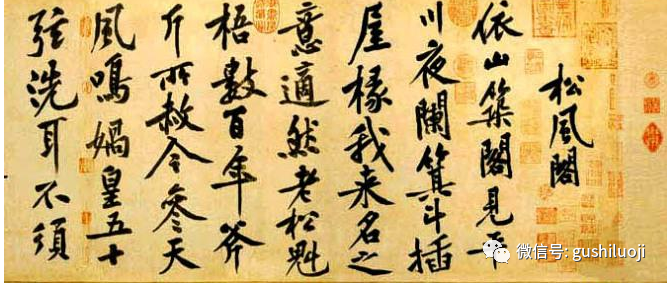 松風閣
依山築閣見平
川夜闌箕斗插
屋椽我來名之
意適然老松魁
梧數百年斧
斤所赦今參天
風鳴媧皇五十
弦洗耳不須
微信号: gushiluoji